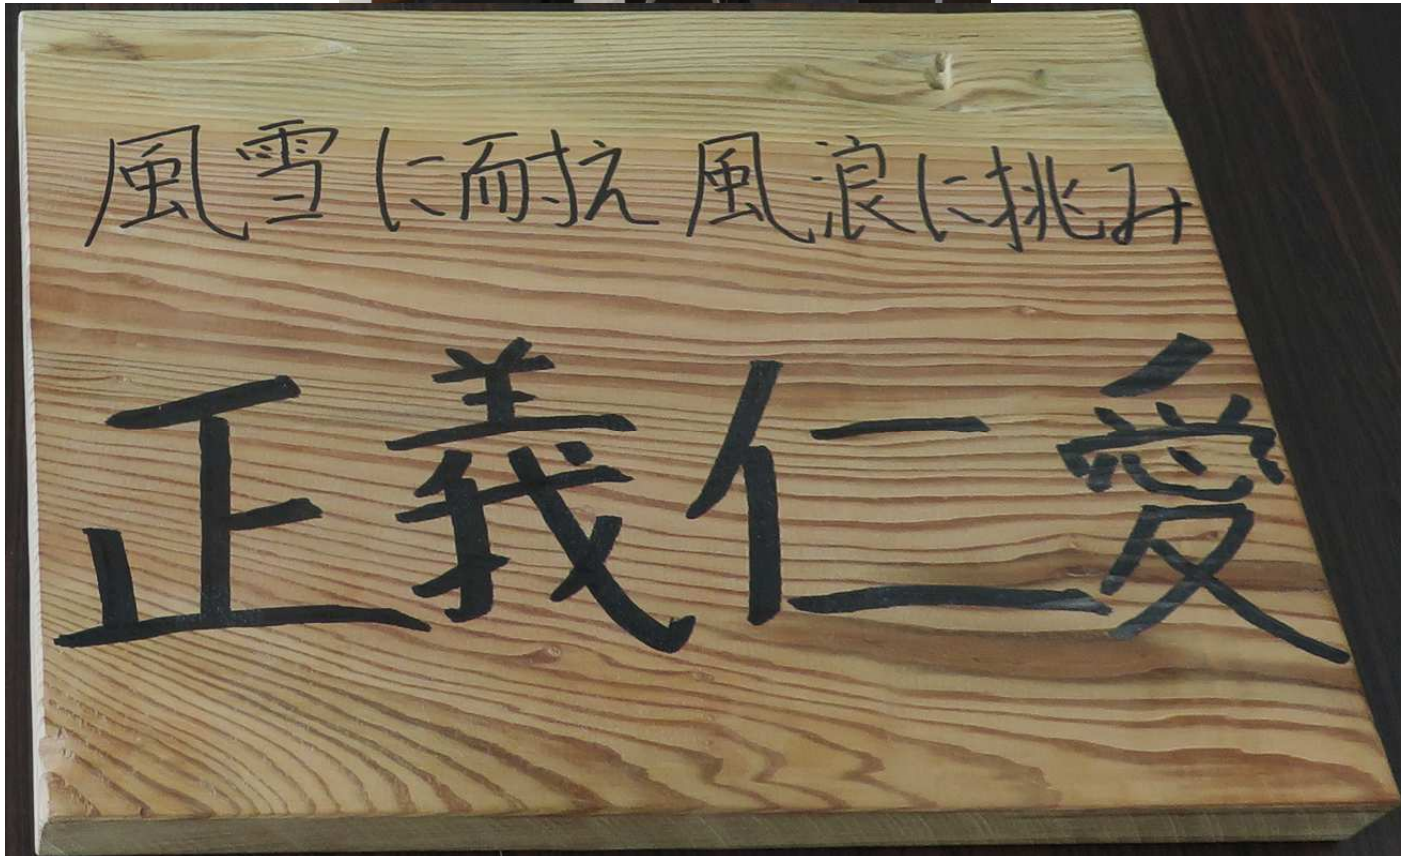 風雪に耐え 風浪に挑み
正義仁愛